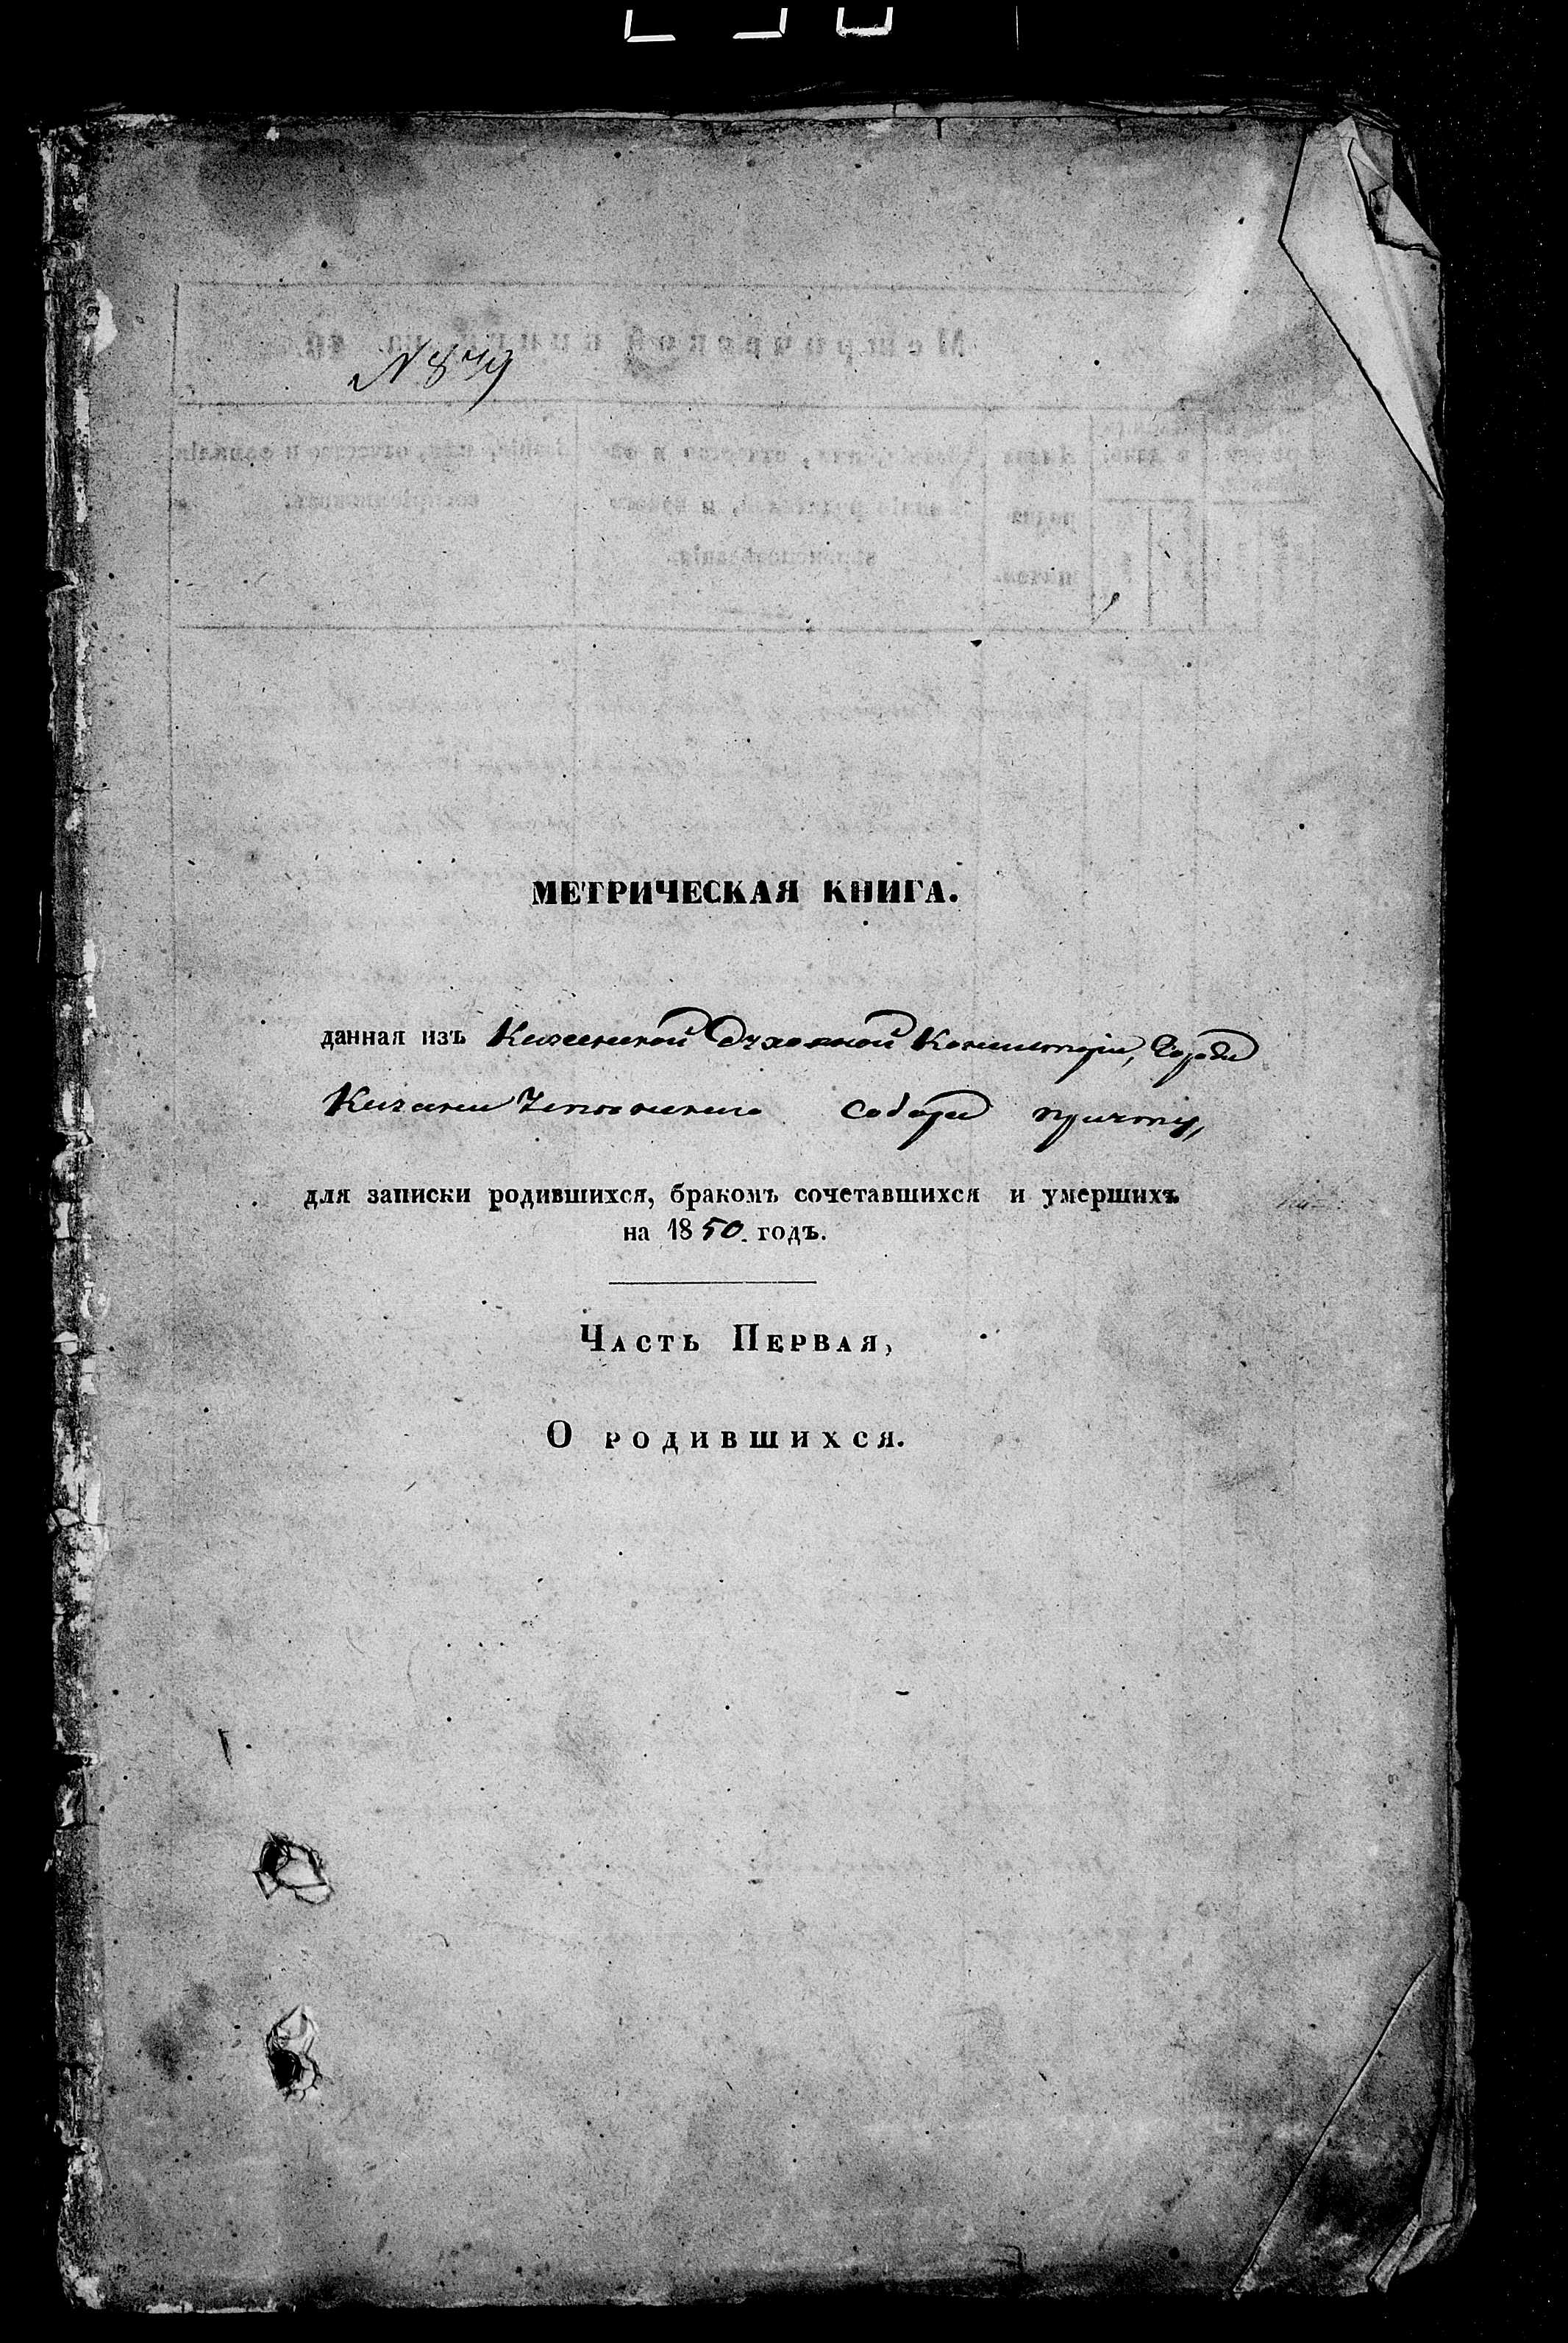 N 849
МЕТРИЧЕСКАЯ КНИГА.
данная изъ Казанской Духовной Консисторіи, Города
Казани собора причту,
для записки родившихся, бракомъ сочетавшихся и умершихъ
на 1850. годъ.
Часть Первая,
О родившихся.